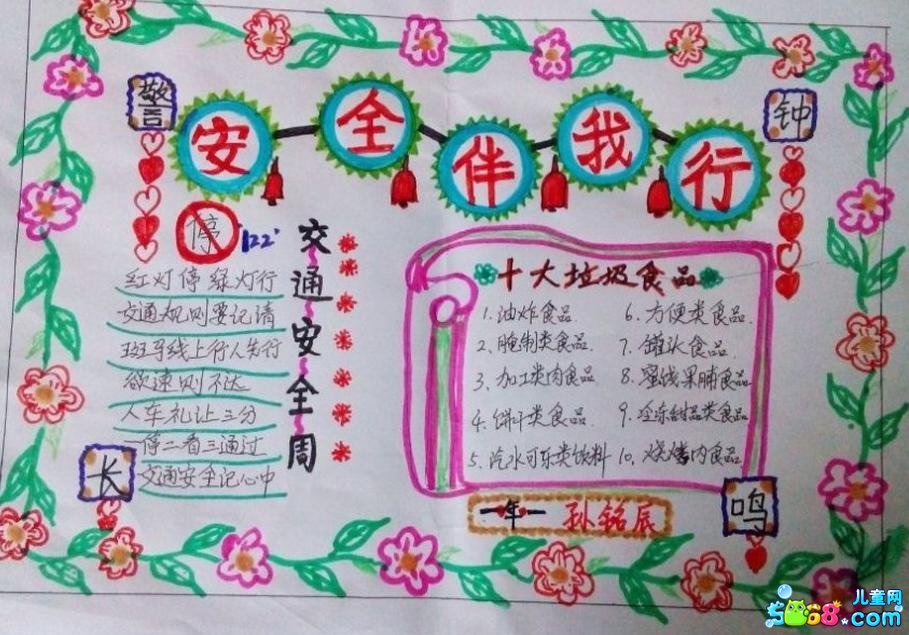 警
钟
安全伴我行
停
122
红灯停 绿灯行
交通规则要记清
斑马线上行人先行
欲速则不达
人车礼让三分
一停二看三通过
交通安全记心中
交通安全周
十大垃圾食品
1. 油炸食品
2. 腌制类食品
3. 加工类肉食品
4. 饼干类食品
5. 汽水可乐类饮料
6. 方便类食品
7. 罐头食品
8. 蜜饯果脯食品
9. 冷冻甜品类食品
10. 烧烤肉食品
长
鸣
一年一 孙铭辰
儿童网
5068.com